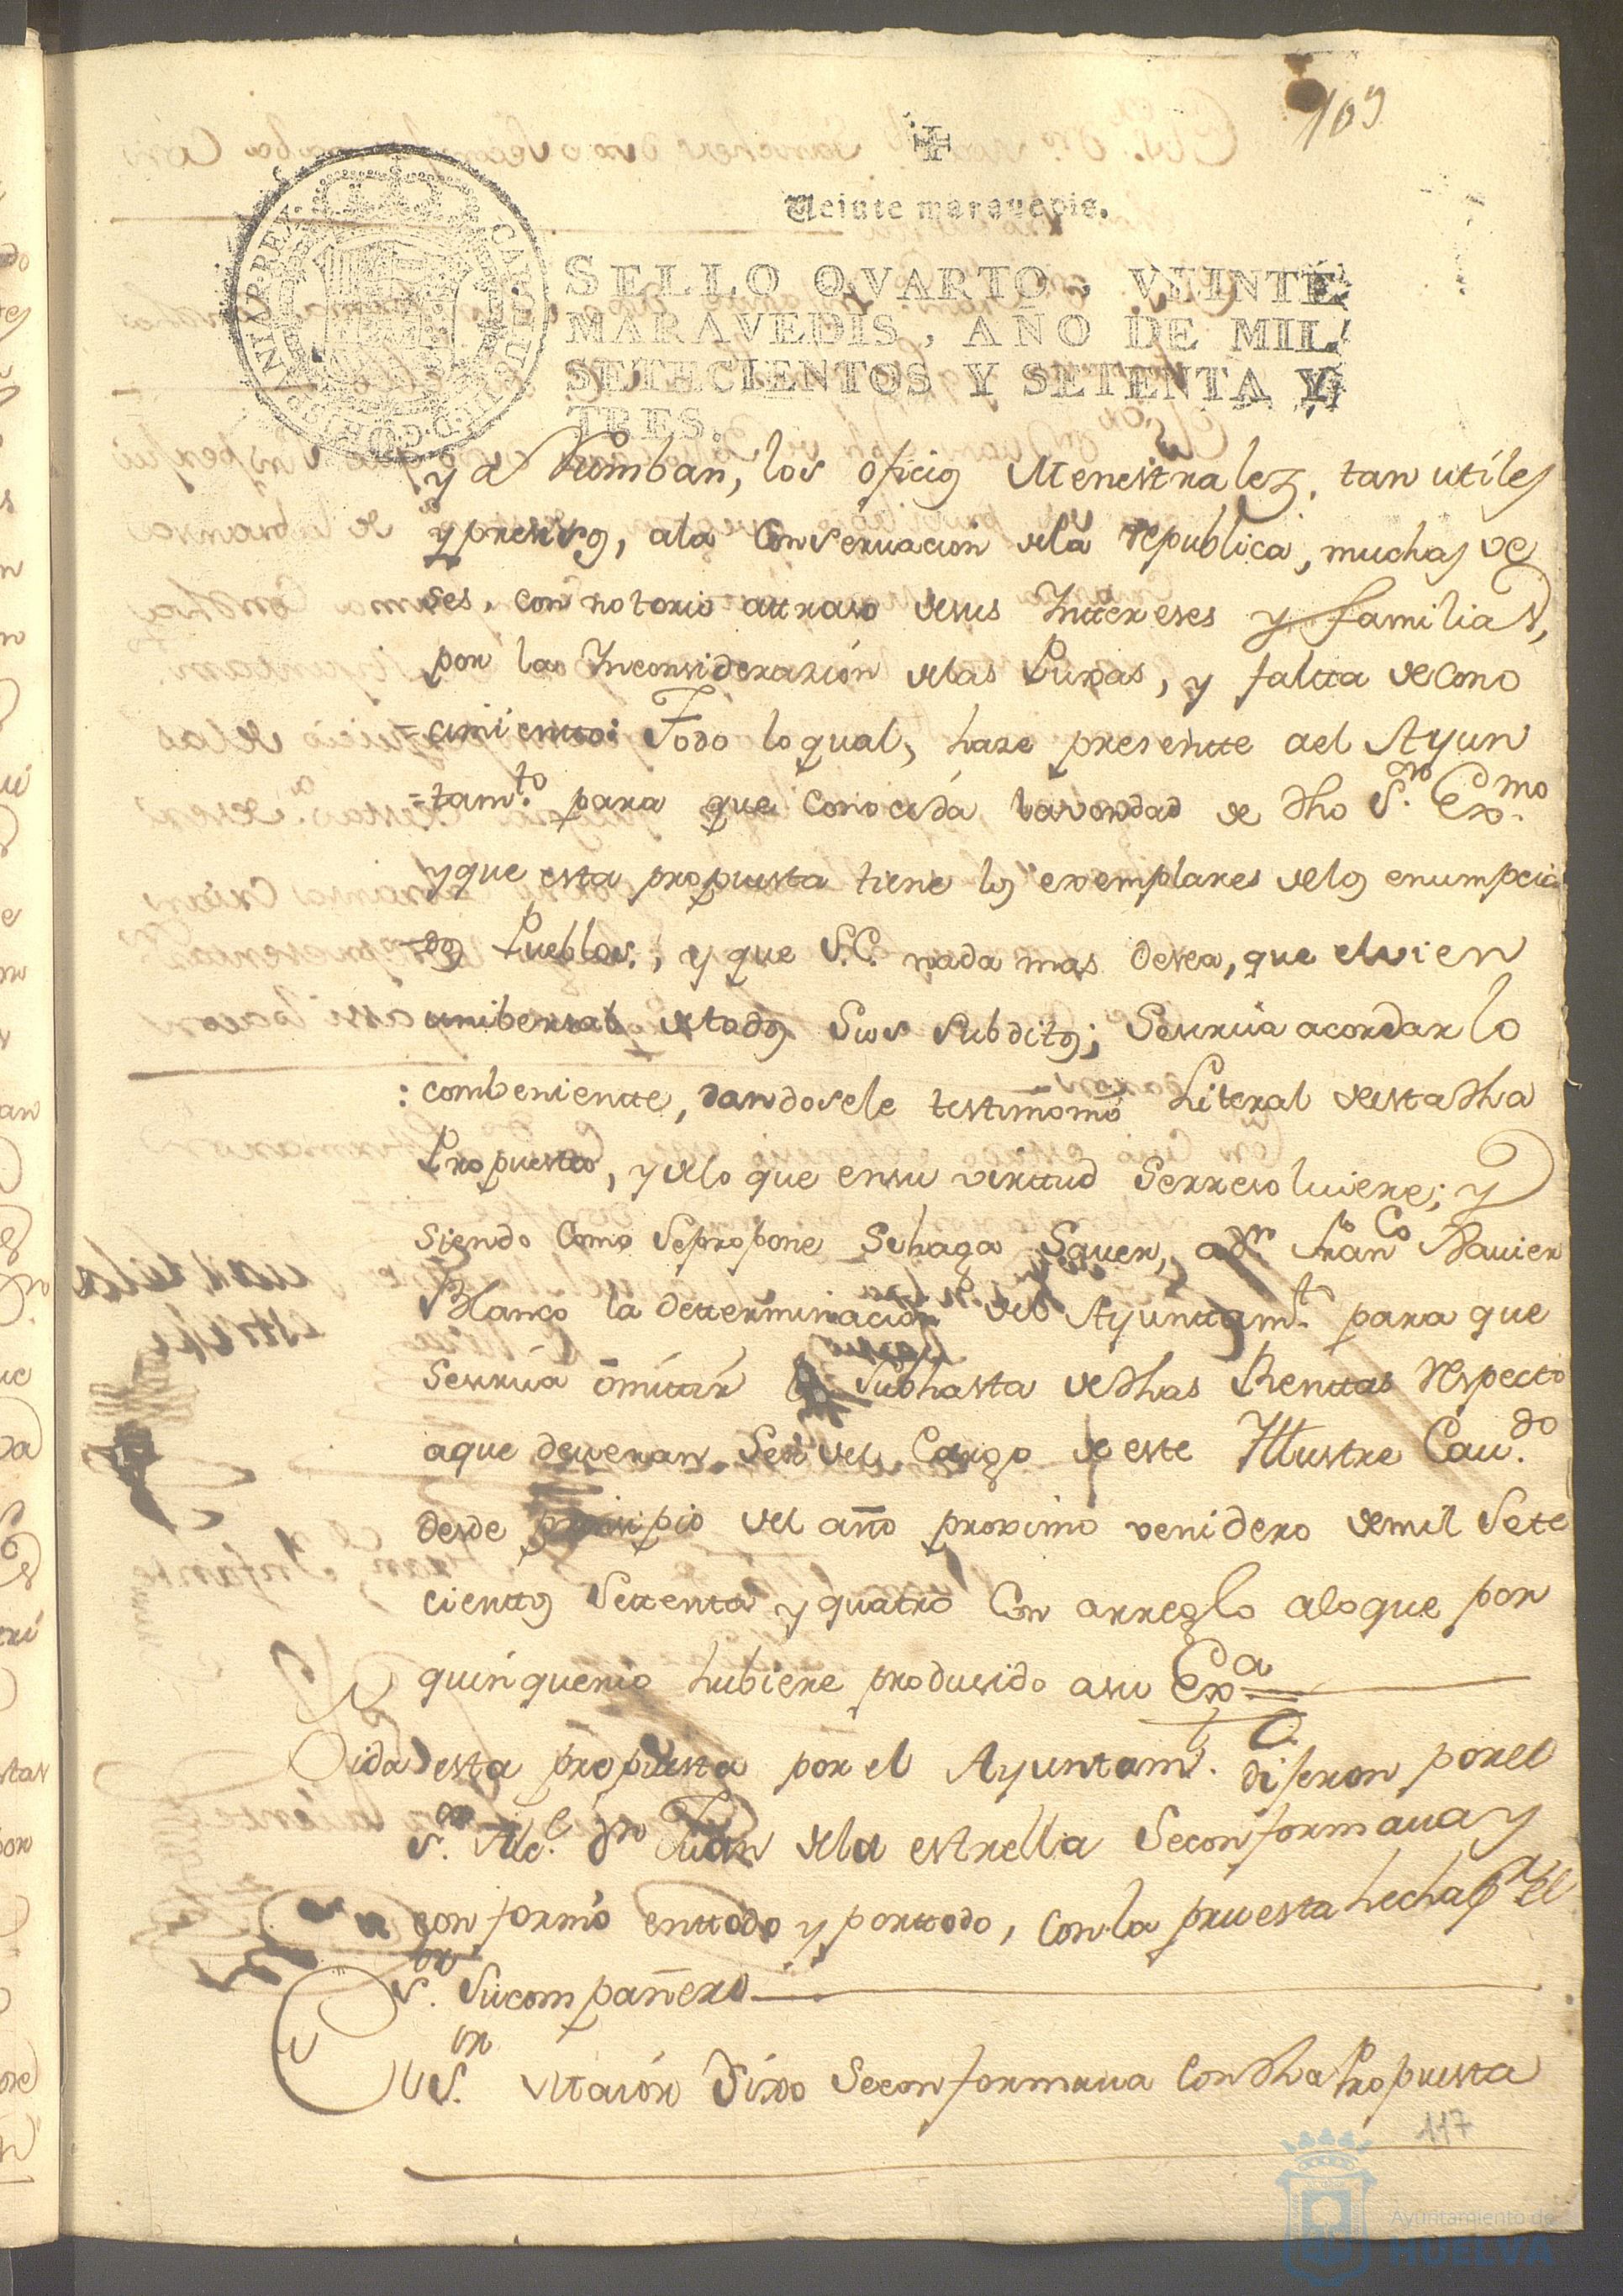 109
Veinte maravedis.
SELLO QVARTO, VEINTE
MARAVEDIS, AÑO DE MIL
SETECIENTOS Y SETENTA Y
TRES.
CAROLUS III D.G. HISPANIAR. REX
los oficios Menestrales, tan utiles
y presisos, ala Conservacion dela republica, muchas ve
ses, con notorio attraso desus Inttereses y familias,
por las Inconsiderasión delas Puxas, y faltta de cono
=cimientto: Todo lo qual, hase presentte ael Ayun
=tam.to para que conocida la vondad de dho S.or Exmo.
y que esta propuesta tiene los exemplares delos enumpcia
dos Pueblos, y que S.E. nada mas desea, que el vien
unibersal detodos sus subditos; Seruia acordar lo
combenientte, dandosele testimonio Literal deesta dha
Propuesta, y delo que ensu virttud Serresolviere; y
siendo como Sepropone Sehaga Sauer, a dn Franco Xauier
Blanco la detterminacion del Ayunttam.to para que
Seruia omittir la Subhasta de dhas Renttas respecto
a que deueran Ser del Cargo de este Illustre Cau.do
desde principio del año proximo venidero demil Sete
cienttos Settenta y quatro Con arreglo alo que por
quinquenio hubiere produsido asu Exa
Oida esta propuesta por el Ayuntam.to diseron por el
S.or Alc.e dn Juan dela estrella Seconformaua y
conformó enttodo y porttodo, con la pruesta hecha pr el
S.or Sucompañero
El S.or Dixo Seconformaua Con dha Propuesta
117
Ayuntamiento de
HUELVA